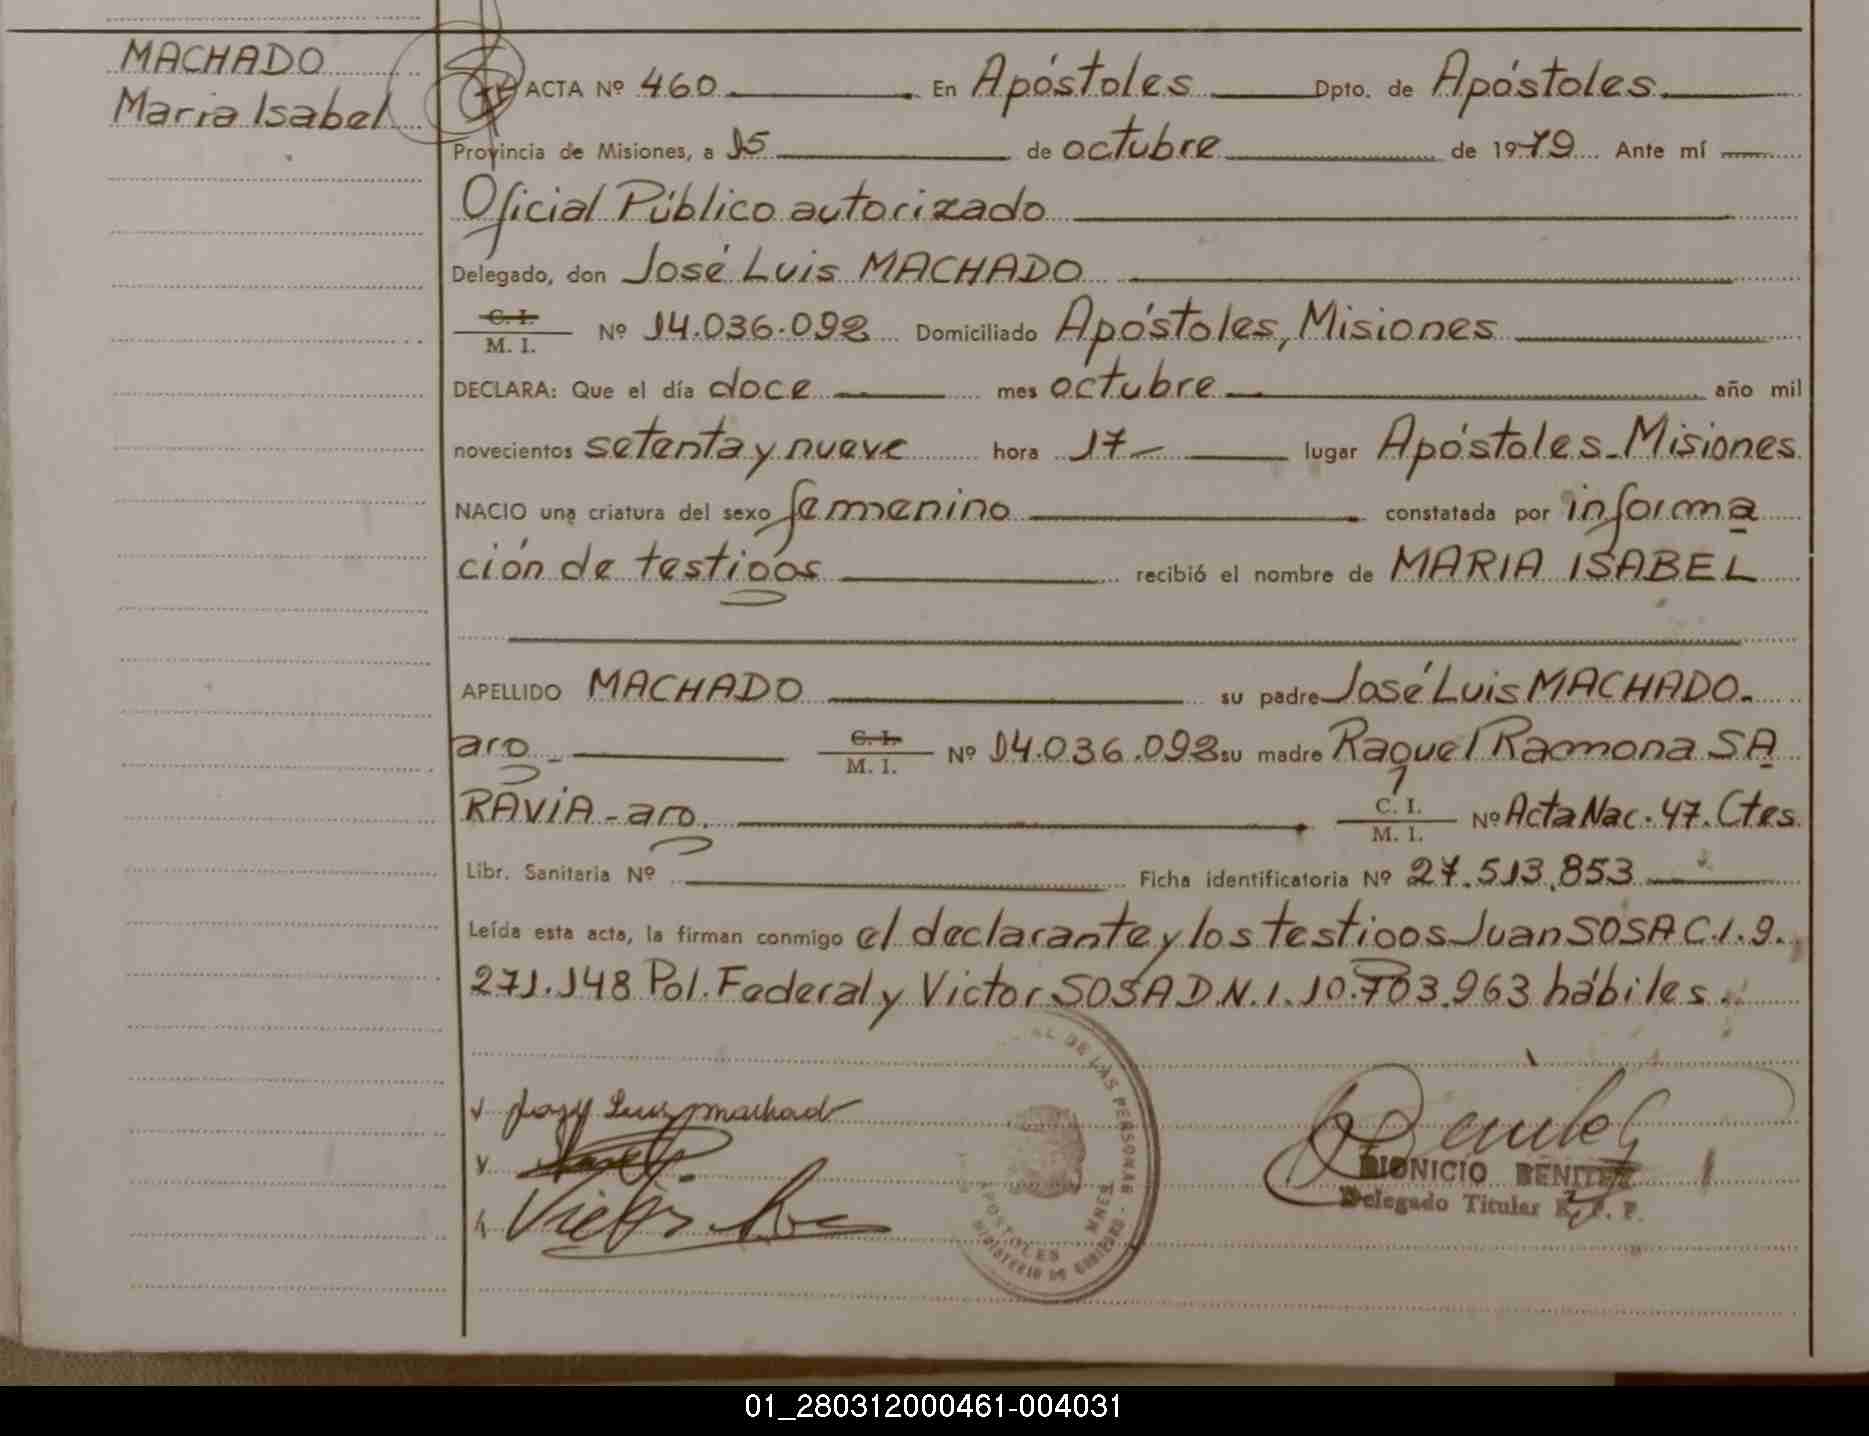 MACHADO
Maria Isabel
ACTA Nº 460 En Apóstoles Dpto. de Apóstoles
Provincia de Misiones, a 15 de octubre de 1979 Ante mí
Oficial Público autorizado
Delegado, don José Luis MACHADO
C. I.
M. I. Nº 14.036.092 Domiciliado Apóstoles, Misiones
DECLARA: Que el día doce mes octubre año mil
novecientos setenta y nueve hora 17 lugar Apóstoles-Misiones
NACIO una criatura del sexo femenino constatada por informa
ción de testigos recibió el nombre de MARIA ISABEL
APELLIDO MACHADO su padre José Luis MACHADO.
arg. C. I.
M. I. Nº 14.036.092 su madre Raquel Ramona SA
RAVIA-arg. C. I.
M. I. Nº Acta Nac. 47. Ctes.
Libr. Sanitaria Nº Ficha identificatoria Nº 27.513.853
Leída esta acta, la firman conmigo el declarante y los testigos Juan SOSA C.I. 9.
271.148 Pol. Federal y Victor SOSA D.N.I. 10.703.963 hábiles.
DE LAS PERSONAS
APOSTOLES MNES
MINISTERIO DE GOBIERNO
DIONICIO BENITEZ
Delegado Titular R. P. P.
01_280312000461-004031